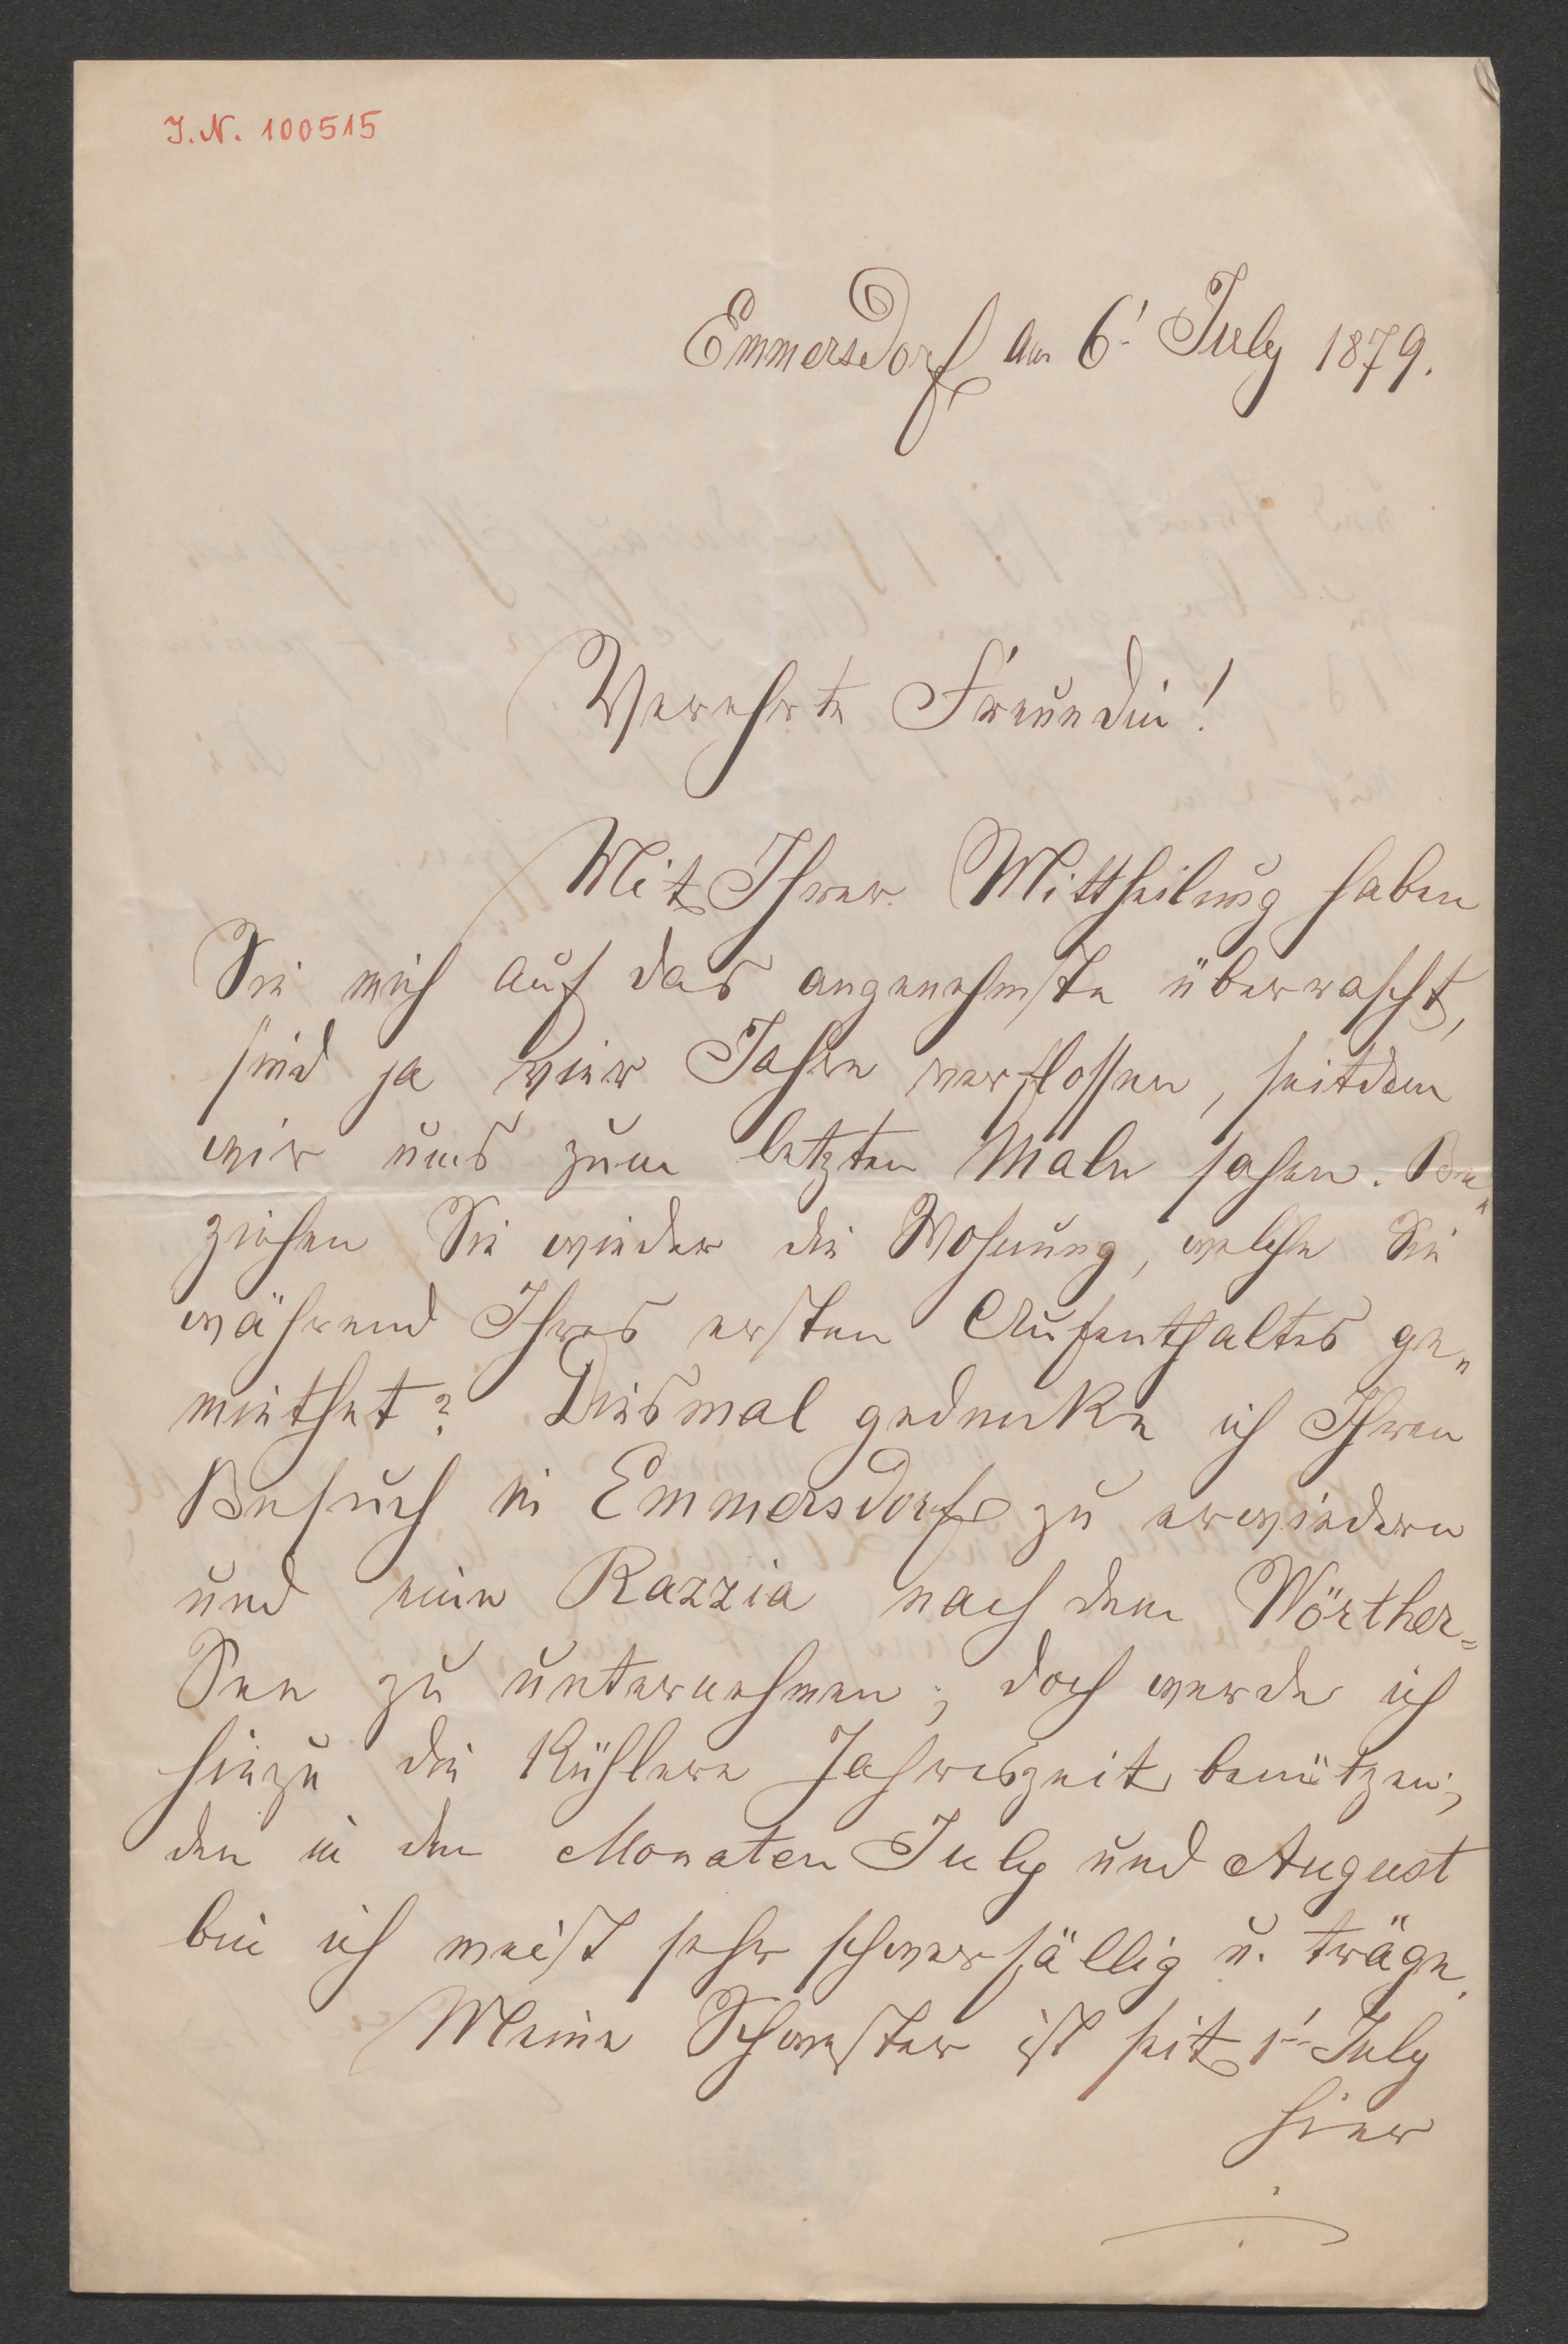 J.N. 100515
Emmersdorf am 6! July 1879.
Verehrte Freundin!
Mit Ihrer Mittheilung haben
Sie mich auf das angenehmste überrascht,
sind ja vier Jahre verflossen, seitdem
wir uns zum letzten Male sahen. Be„
ziehen Sie wieder die Wohnung, welche Sie
während Ihres ersten Aufenthaltes ge„
miethet? Diesmal gedenke ich Ihren
Besuch in Emmersdorf zu erwiedern
und eine Razzia nach dem Wörther=
See zu unternehmen; doch werde ich
hiezu die kühlere Jahreszeit benützen;
den in den Monaten July und August
bin ich meist sehr schwerfällig u. träge.
Meine Schwester ist seit 1! July
hier